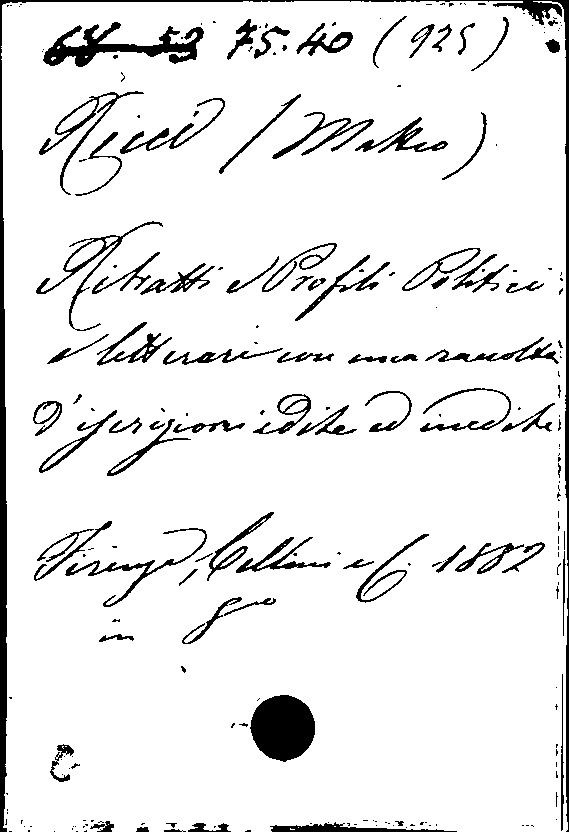 75. 40 (925)
Ricci (Matteo)
Ritratti e Profili Politici
e letterari con una raccolta
d'iscrizioni edite ed inedite
Firenze, Cellini e C. 1882
in 8º